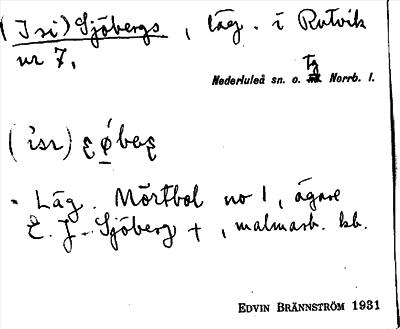 (Isi) Sjöbergs, läg. i Rutvik
nr 7.
Nederluleå sn. o. tg Norrb. l.
(i̇sɩ) ʂǿbæʂ
- Läg. Mörtbol no 1, ägare
E. J. Sjöberg +, malmarb. bb.
EDVIN BRÄNNSTRÖM 1931